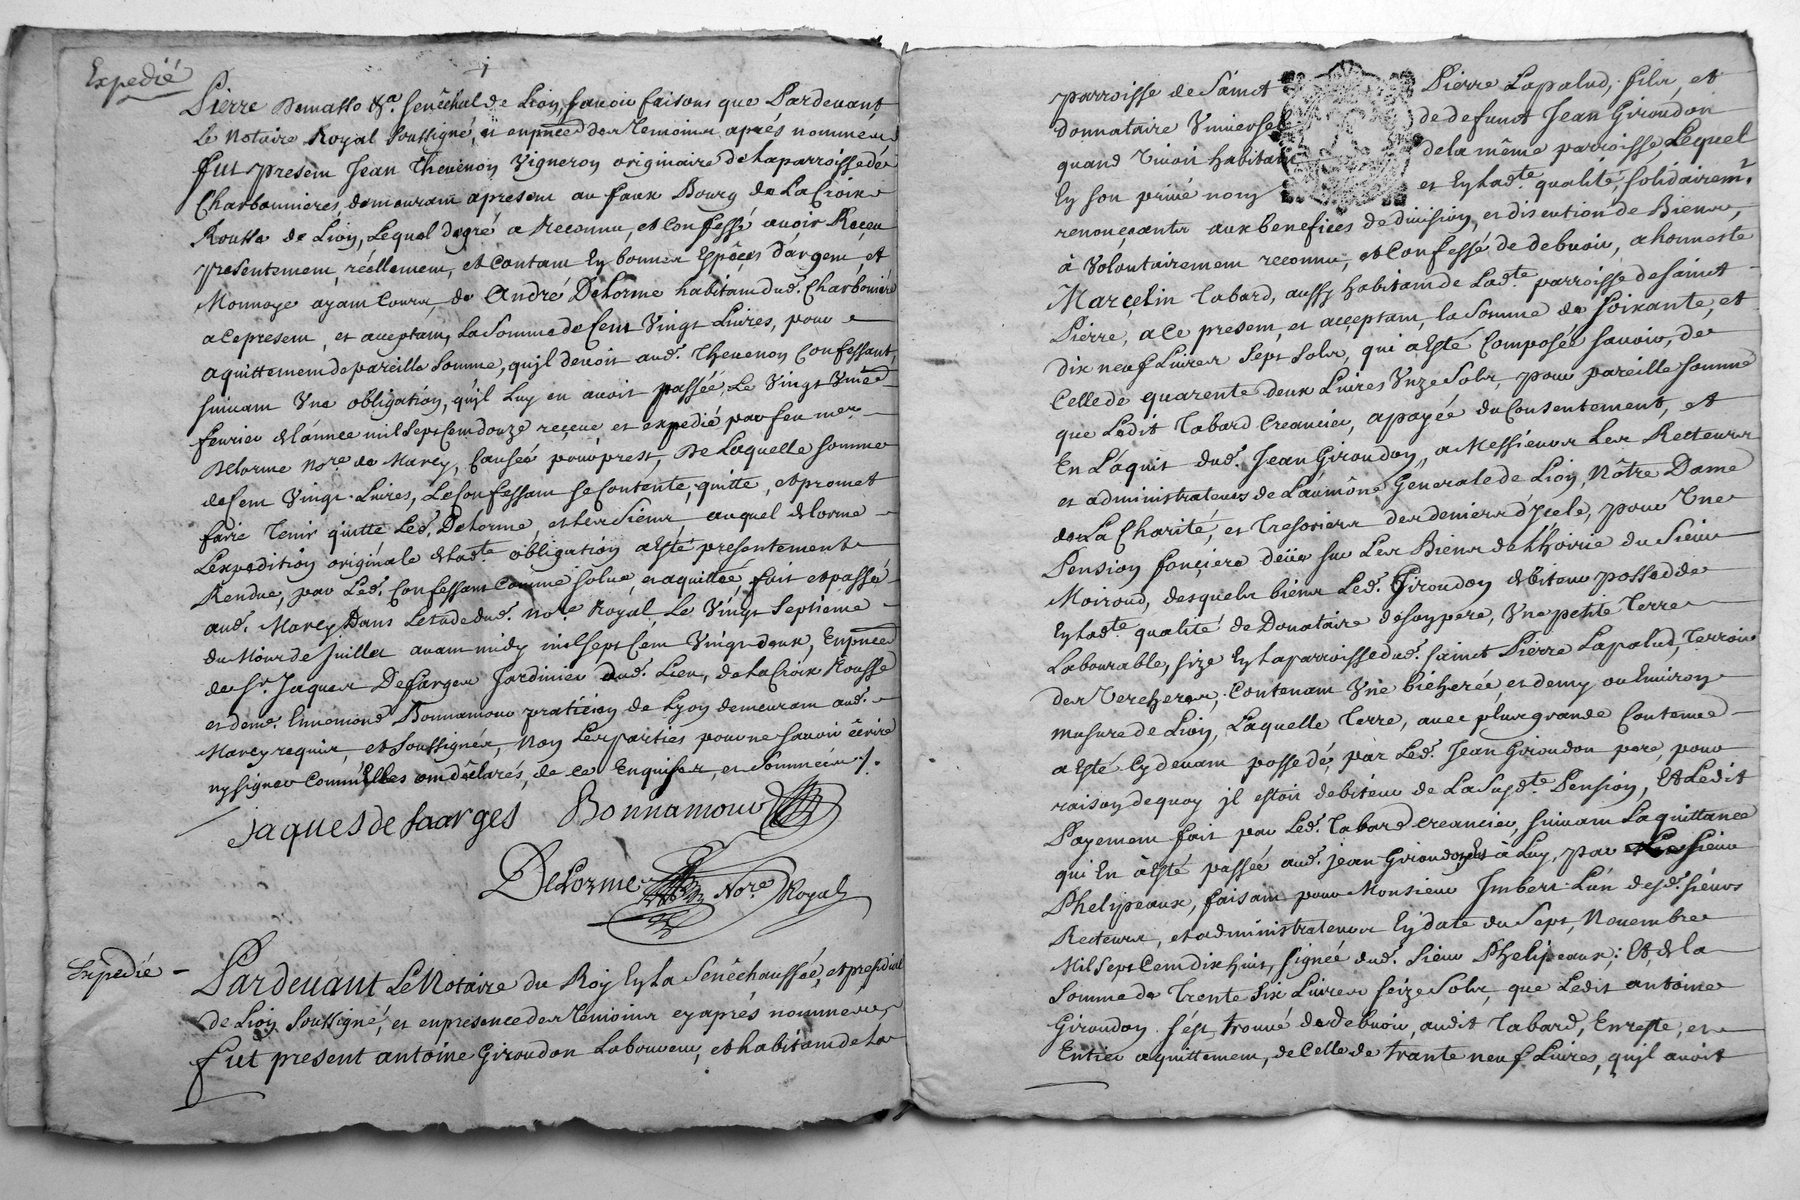 Expedié
Pierre Demasso &a. Senêchal de Lion, Savoir faisons que Pardevant
Le Notaire Royal Soussigné, et enpñce des Temoins aprés nommés
fut present Jean Thevenon Vigneron originaire de la parroisse de
Charbonnieres, demeurant apresent au faux Bourg de La Croix
Rousse de Lion, Lequel degré a Reconnu, et Confessé avoir Reçeu
presentement, réellement, et Contant En bonnes Espêces d'argent, et
Monnoye ayant Cours, de André Delorme habitant dud. Charboniere
aCepresent, et acceptant, La Somme de Cent Vingt Livres, pour
aquittement de pareille Somme, qu'jl devoit aud. Thevenon Confessant,
suivant Une obligation, qu'jl Luy en avoit passée Le Vingt Une
fevrier de l'année mil Sept Cent douze reçeue et expedié par feu me.
Delorme Nore. de Marcy, Causée pour prest, De Laquelle Somme
de Cent Vingt Livres, Le Confessant se Contente, quitte, et promet
faire Tenir quitte Led. Delorme, et Les Siens, auquel delorme
L'expedition originale de lade. obligation a Esté presentement
Rendue, par Led. Confessant Comme solue, et aquittée, fait et passé
aud. Marcy Dans L'etude dud. Nore. Royal Le Vingt Septieme
du Mois de juillet avant midy mil sept Cent Vingt deux, En pñce
de Sr. Jaques Desarges Jardinier dud. Lieu, de La Croix Rousse
et deme. Ennemond Bonnamour praticien de Lyon demeurant aud.
Marcy requis, et Soussignés, Non Les parties pour ne Savoir êcrire
ny signer Comm'Elles ont dêclarés, de ce Enquises, et Sommées ./.
jaques de saarges Bonnamour
DeLorme Nore. Royal
Expedié - Pardevant Le Notaire du Roy En La Senêchaussée, et presidial
de Lion Soussigné, et en presence des Témoins cy aprés nommés,
fut present antoine Giroudon Laboureur, et habitant de La
parroisse de Sainct Pierre Lapalud, fils, et
donnataire Universel de defunct Jean Giroudon
quand Vivoit habitant de la même parroisse, Lequel
En son privé nom et En lade. qualité, solidairemt.
renonçants aux benefices de division, et discution de Biens,
à Volontairement reconnu, et Confessé de debvoir, a honneste
Marçelin Tabard, aussy habitant de Lade. parroisse de sainct
Pierre, a Ce present, et acceptant, la Somme de Soixante, et
dix neuf Livres Sept Sols, qui a Esté Composée savoir, de
Celle de quarente deux Livres Unze Sols, pour pareille somme
que Ledit Tabard Creancier, a payée du Consentement, et
En L'aquit dud. Jean Giroudon, a Messieurs Les Recteurs
et administrateurs de L'aumône Generale de Lion, Nôtre Dame
de La Charité, et Tresoriers des deniers d'jcele, pour Une
Pension fonçiere deüe sur Les Biens de L'hoirie du Sieur
Moiroud, desquels biens Led. Giroudon debiteur possedde
En lade. qualité de Donataire de son pere, Une petite Terre
Labourable, size En la parroisse dud. sainct Pierre Lapalud, Terroir
des Vercheres, Contenant Une bicherée, et demy ou Environ
mesure de Lion, Laquelle Terre, avec plus grande Contenue
a Esté Cy devant possedé, par Led. Jean Giroudon pere, pour
raison de quoy jl estoit debiteur de La Susde. Pension, Et Ledit
Payement fait par Led. Tabard Creancier, suivant La quittance
qui En a Esté passée aud. jean Giroudon, à Luy, par Le sieur
Phelipeaux, faisant pour Monsieur Jmbert L'un desd. siéurs
Recteurs, et administrateurs En date du Sept, Novembre
Mil Sept Cent dix huit, signée dud. Sieur Phelipeaux; Et de la
Somme de Trente Six Livres seize Sols, que Ledit antoine
Giroudon s'est trouvé de debvoir, audit Tabard, En reste, et
Entier aquittement, de Celle de trante neuf Livres, qu'jl avoit